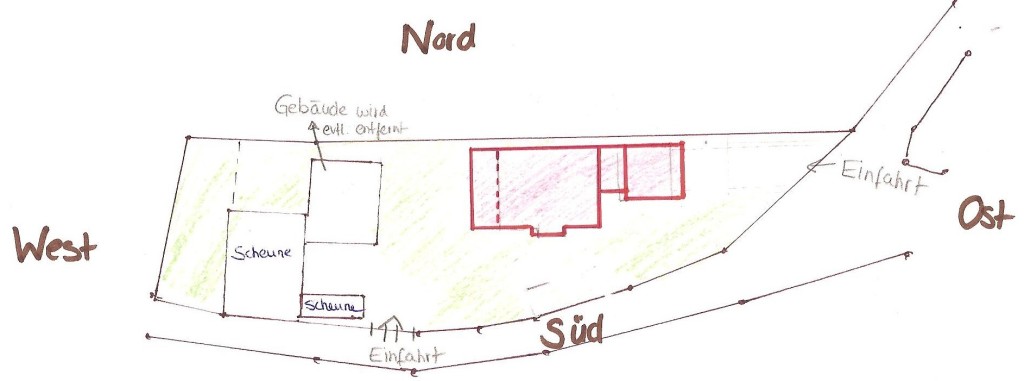 Nord
Gebäude wird
evtl. entfernt
Einfahrt
West
Ost
Scheune
Scheune
Süd
Einfahrt